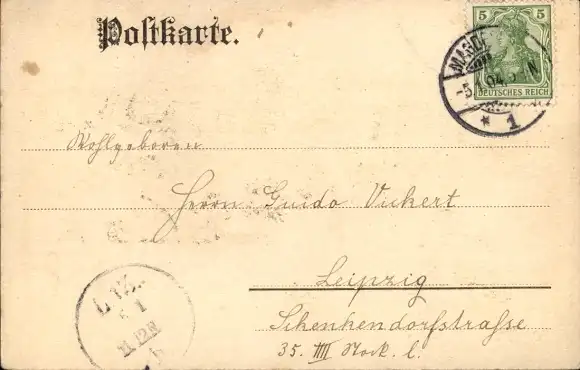 Postkarte.
5 5
DEUTSCHES REICH
MAGDE
-5.1.04.
N
* 1
Wohlgeboren
Herrn Guido Vickert
Leipzig
Schenkendorfstraße
35. IIII Stock. l.
1